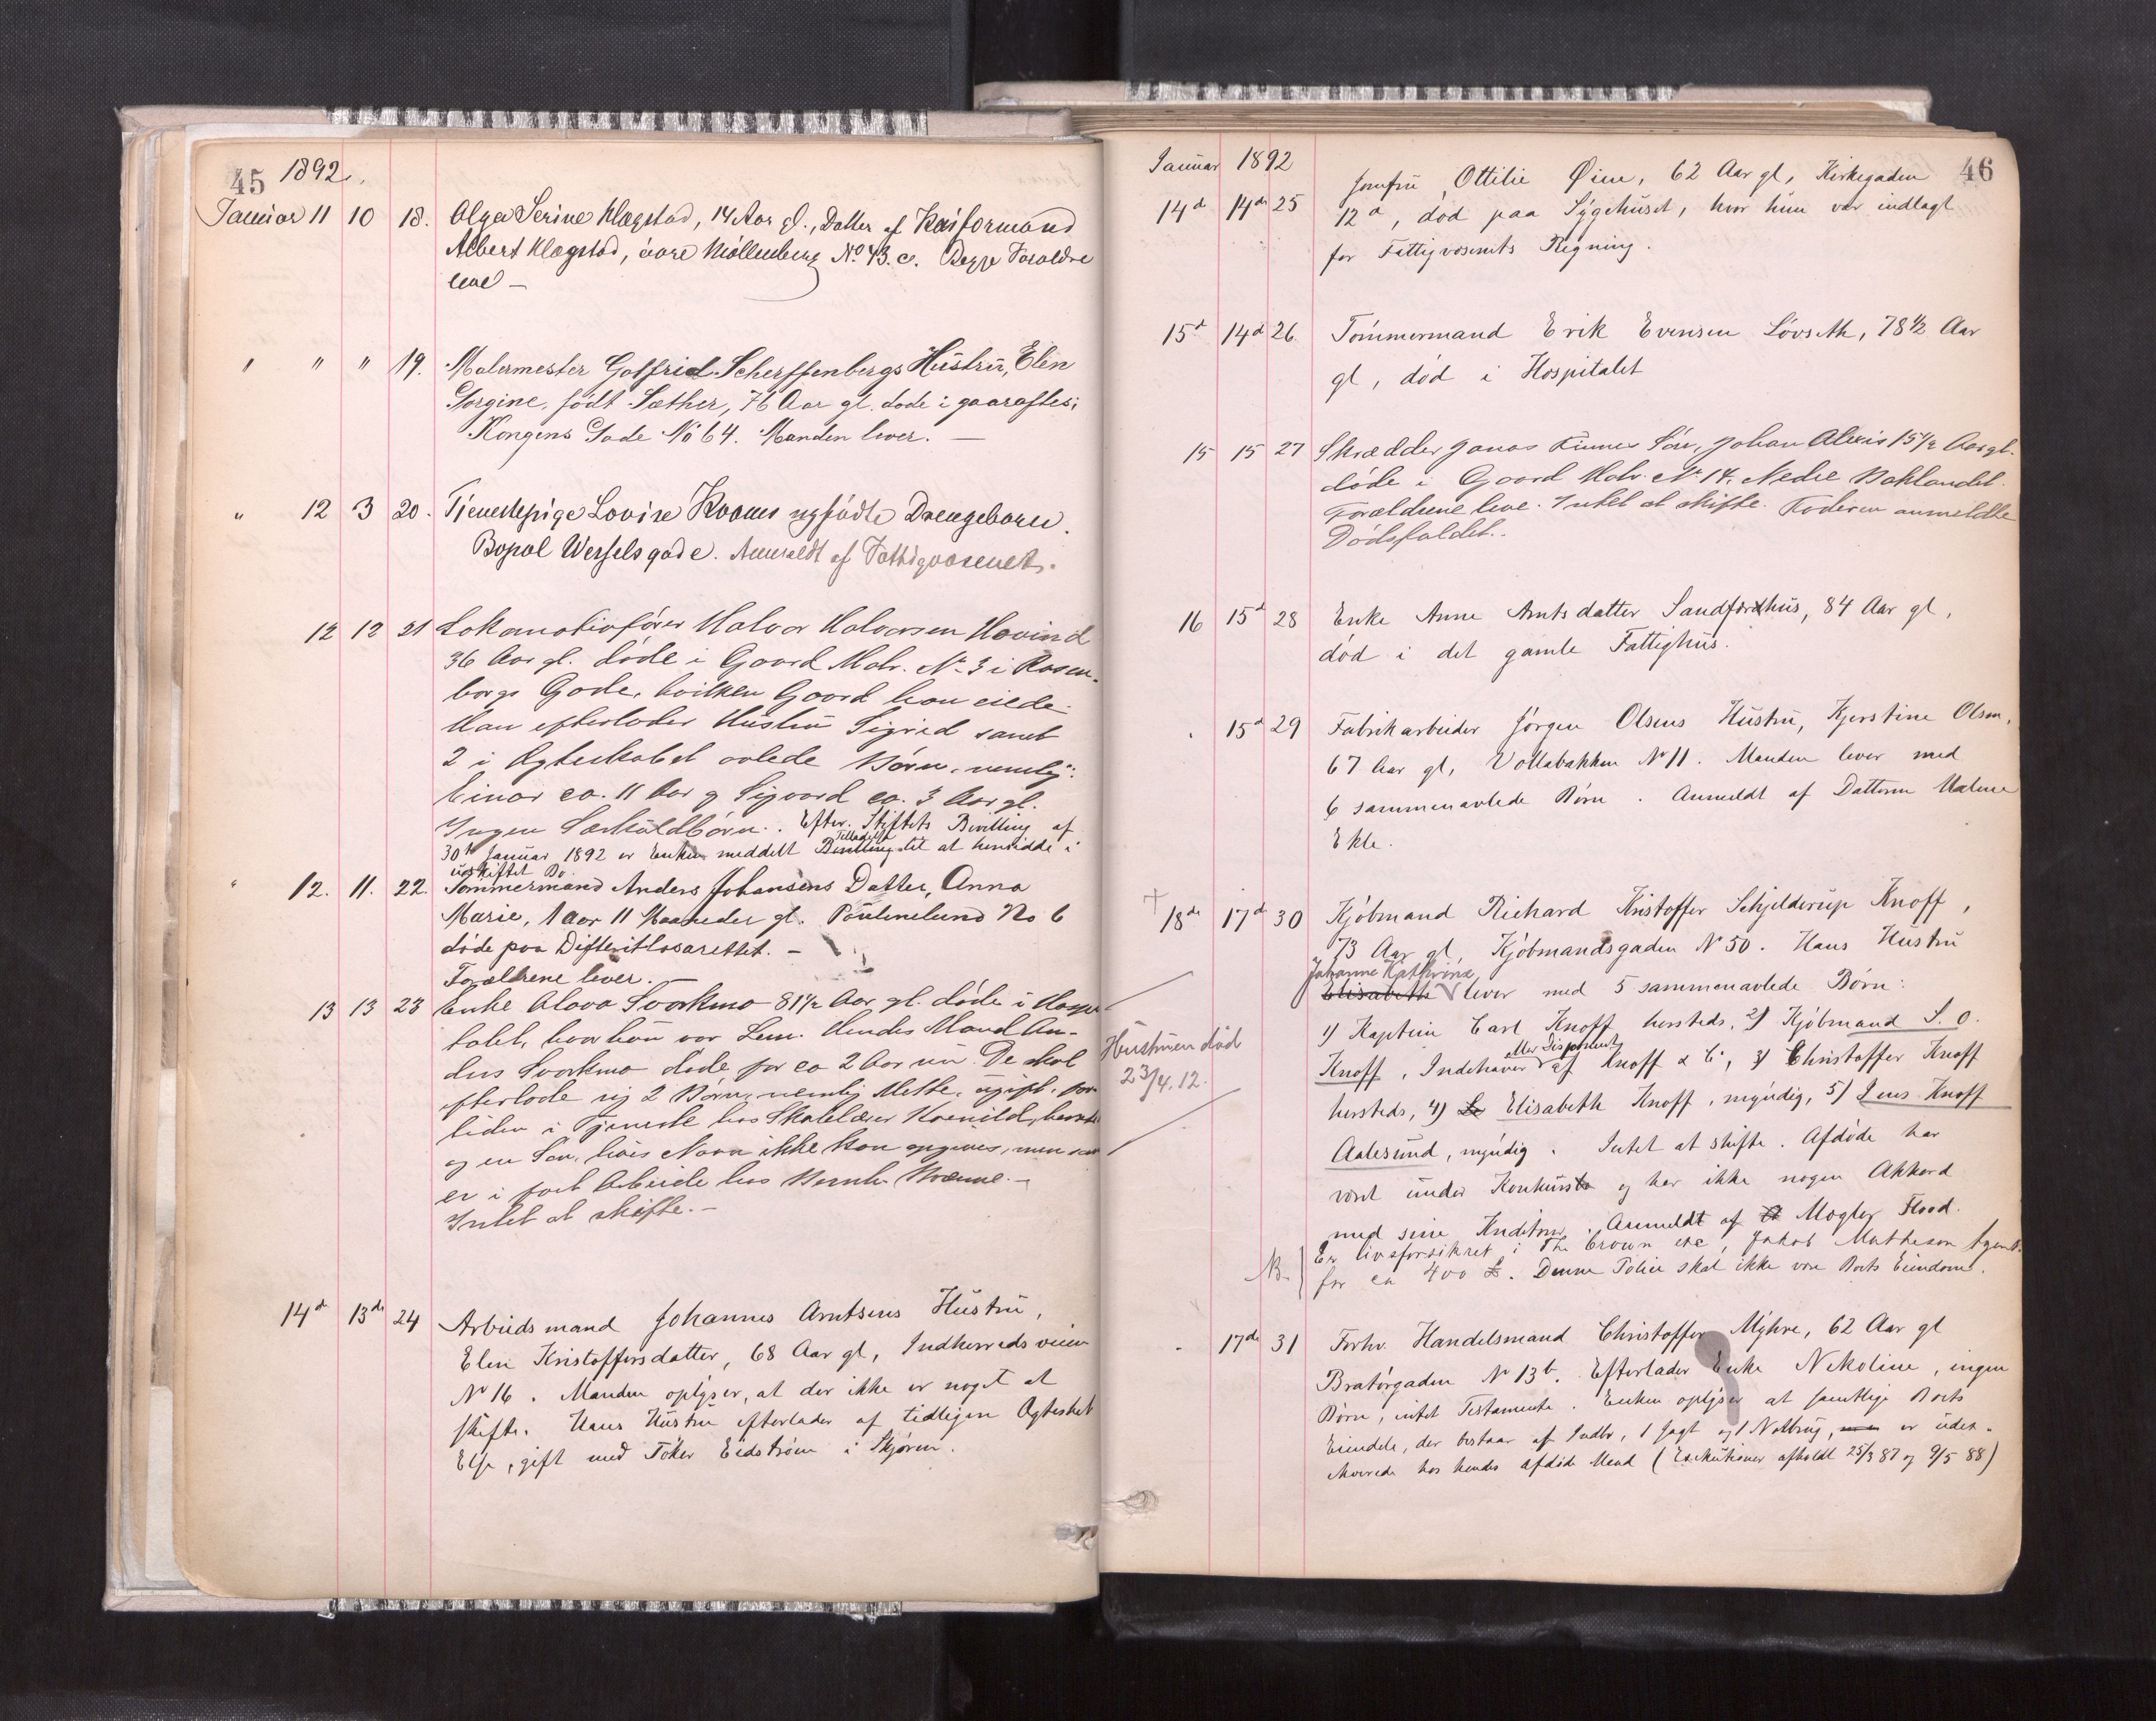 45 1892.
Januar 11 10 18. Olga Serine Klegstad, 14 Aar gl., Datter af Kaiformand
Albert Klegstad, øvre Møllenberg No 43. c. Begge Foraldre
leve —
" " " 19. Malermester Gotfried Scherffenbergs Hustru, Elen
Gorgine, født Sæther, 76 Aar gl. døde i gaaraftes i
Kongens Gade No 64. Manden lever. —
" 12 3 20. Tjenestepige Lovise nyfødte Drengebarn.
Bopæl Wesselsgade. Anmeldt af Fattigvæsenet.
12 12 21 Lokomotivfører Halvor Halvorsen Hovind
36 Aar gl. døde i Gaard Matr. No 3 i Rosen-
borgs Gade, hvilken Gaard han eiede.
Han efterlader Hustru Sigrid samt
2 i Ægteskabet avlede Børn, nemlig:
Einar ca. 11 Aar og Sigvard ca. 3 Aar gl.
Ingen Særkuldbørn. Efter Stiftets Bevilling af
30te Januar 1892 er Enken meddelt Tilladelse til at hensidde i
uskiftet Bo.
" 12. 11. 22. Tømmermand Anders Johansens Datter, Anna
Marie, 1 Aar 11 Maaneder gl. Paulinelund No 6
døde paa Difteritlasarettet. —
Forældrene lever. —
13 13 23 Enke Alova Svorkmo 81½ Aar gl. døde i Hospi
talet, hvor hun var Lem. Hendes Mand An-
ders Svorkmo døde for ca 2 Aar. De skal
efterlade sig 2 Børn, nemlig Mette, ugift, for
tiden i Tjeneste hos Skolelærer
og en Søn, hvis Navn ikke kan opgives, men som
er i fast Arbeide hos Bernh. Brænne. —
Intet at skifte. —
14d 13de 24 Arbeidsmand Johannes Arntsens Hustru,
Elen Kristoffersdatter, 68 Aar gl, Indherredsveien
No 16. Manden oplyser, at der ikke er noget at
skifte. Hans Hustru efterlader af tidligere Ægteskab
Else, gift med Eidstrøm i Skjøren.
46
Januar 1892
14d 14de 25 Jomfru Ottilie Øien, 62 Aar gl, Kirkegaden
12a, død paa Sygehuset, hvor hun var indlagt
for Fattigvæsenets Regning.
15d 14d 26 Tømmermand Erik Evensen Løvseth, 78½ Aar
gl, død i Hospitalet
15 15 27 Skrædder Jonas Søn, Johan Alexis 15½ Aar gl.
døde i Gaard Matr. No 14, Nedre Baklandet.
Forældrene leve. Intet at skifte. Faderen anmeldte
Dødsfaldet.
16 15d 28 Enke Anne Arntsdatter Sandfærhus, 84 Aar gl,
død i det gamle Fattighus.
" 15d 29 Fabrikarbeider Jørgen Olsens Hustru, Kjerstine Olsen,
67 Aar gl, Vollabakken No 11. Manden lever med
6 sammenavlede Børn. Anmeldt af Datteren Malene
Ekle.
+ 18de 17d 30 Kjøbmand Richard Kristoffer Schjelderup Knoff,
73 Aar gl, Kjøbmandsgaden No 50. Hans Hustru
Johanne Kathrine
Elisabeth lever med 5 sammenavlede Børn:
1) Kaptein Carl Knoff hersteds, 2) Kjøbmand S. O.
eller Disponent
Knoff, Indehaver af Knoff & Co, 3) Christoffer Knoff
hersteds, 4) Elisabeth Knoff, myndig, 5) Jens Knoff
Aalesund, myndig. Intet at skifte. Afdøde har
været under Konkurs og har ikke nogen Akkord
med sine Kreditorer. Anmeldt af Mægler Flood.
NB. Er livsforsikret i The Crown etc, Jakob Matheson Agent.
for ca 400 £. Denne Police skal ikke være Boets Eiendom.
Hustruen død
23/4.12.
" 17de 31 Forhv. Handelsmand Christoffer Myhre, 62 Aar gl
Bratørgaden No 13b. Efterlader Enke Nekoline, ingen
Børn, intet Testamente. Enken oplyser at samtlige Boets
Eiendele, der bestaar af Indbo, 1 Jagt og 1 Notbrug, er uden-
skrevede hos hendes afdøde Mand (Exekutioner afholdt 25/3 87 og 9/5 88)